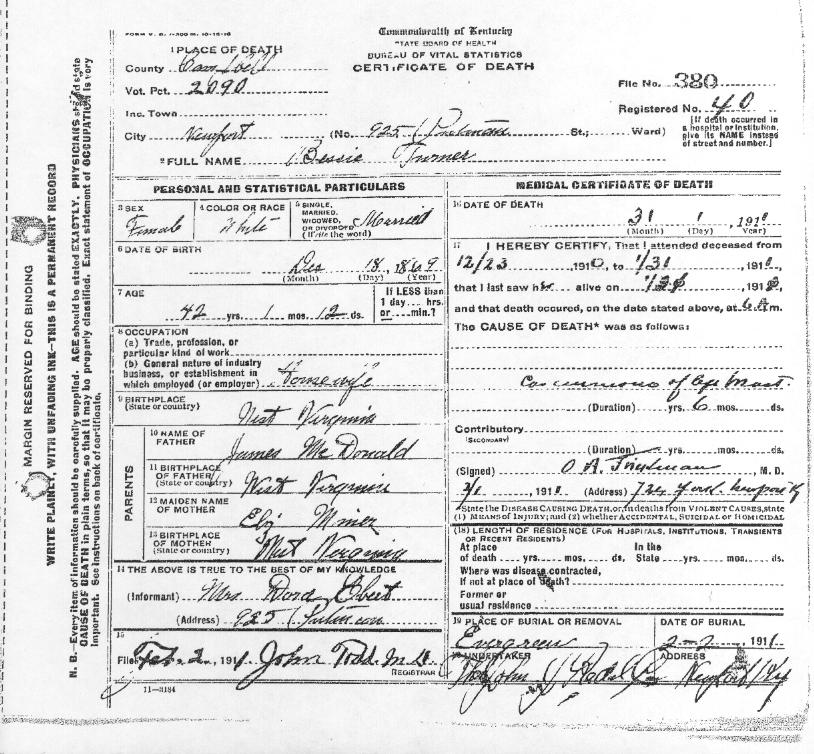 FORM V. S. 1-300 M. 10-15-10
Commonwealth of Kentucky
STATE BOARD OF HEALTH
BUREAU OF VITAL STATISTICS
CERTIFICATE OF DEATH
1 PLACE OF DEATH
County Campbell
Vot. Pct. 2090
Inc. Town
City Newport (No. 925 Putnam St.; Ward)
File No. 380
Registered No. 40
[If death occurred in
a hospital or institution,
give its NAME instead
of street and number.]
2 FULL NAME Bessie Turner
PERSONAL AND STATISTICAL PARTICULARS
3 SEX
Female
4 COLOR OR RACE
White
5 SINGLE,
MARRIED,
WIDOWED,
OR DIVORCED
(Write the word)
Married
6 DATE OF BIRTH
Dec 18, 1869
(Month) (Day) (Year)
7 AGE
42 yrs. 1 mos. 12 ds.
If LESS than
1 day.... hrs.
or.... min.?
8 OCCUPATION
(a) Trade, profession, or
particular kind of work
(b) General nature of industry
business, or establishment in
which employed (or employer) Housewife
9 BIRTHPLACE
(State or country)
West Virginia
PARENTS
10 NAME OF
FATHER
James McDonald
11 BIRTHPLACE
OF FATHER
(State or country)
West Virginia
12 MAIDEN NAME
OF MOTHER
Eliz Miner
13 BIRTHPLACE
OF MOTHER
(State or country)
West Virginia
14 THE ABOVE IS TRUE TO THE BEST OF MY KNOWLEDGE
(Informant) Mrs Dora Ebert
(Address) 925 Putnam
15
Filed Feb. 2, 1911 John Todd M.D.
REGISTRAR
11-3184
MEDICAL CERTIFICATE OF DEATH
16 DATE OF DEATH
31 1, 191
(Month) (Day) (Year)
17 I HEREBY CERTIFY, That I attended deceased from
12/23, 1910, to 1/31, 191
that I last saw her alive on, 191
and that death occurred, on the date stated above, at 6 A m.
The CAUSE OF DEATH* was as follows:
of
(Duration) yrs. 6 mos. ds.
Contributory
(SECONDARY)
(Duration) yrs. mos. ds.
(Signed) O A, M. D.
2/1, 191 (Address) 724 York Newport Ky
*State the DISEASE CAUSING DEATH, or, in deaths from VIOLENT CAUSES, state
(1) MEANS OF INJURY; and (2) whether ACCIDENTAL, SUICIDAL or HOMICIDAL.
(18) LENGTH OF RESIDENCE (FOR HOSPITALS, INSTITUTIONS, TRANSIENTS
OR RECENT RESIDENTS)
At place In the
of death yrs. mos. ds. State yrs. mos. ds.
Where was disease contracted,
If not at place of death?
Former or
usual residence
19 PLACE OF BURIAL OR REMOVAL
Evergreen
DATE OF BURIAL
2-2, 1911
20 UNDERTAKER
John Co
ADDRESS
Newport Ky
MARGIN RESERVED FOR BINDING
WRITE PLAINLY, WITH UNFADING INK—THIS IS A PERMANENT RECORD
N. B.—Every item of information should be carefully supplied. AGE should be stated EXACTLY. PHYSICIANS should state
CAUSE OF DEATH in plain terms, so that it may be properly classified. Exact statement of OCCUPATION is very
important. See instructions on back of certificate.